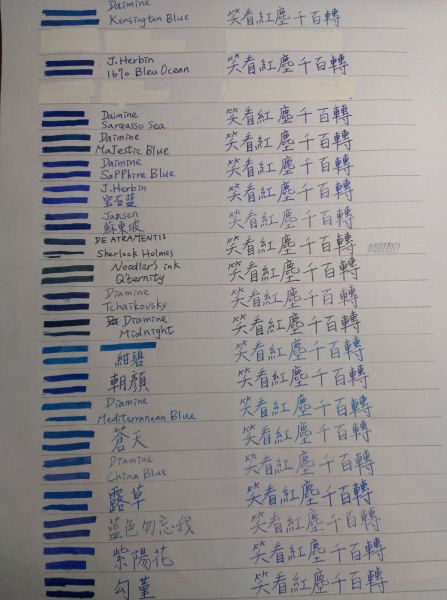 Daimine
Kensington Blue 笑看紅塵千百轉
J.Herbin
1670 Bleu Ocean 笑看紅塵千百轉
Daimine
Sargasso Sea 笑看紅塵千百轉
Daimine
Majestic Blue 笑看紅塵千百轉
Daimine
SaPPhire Blue 笑看紅塵千百轉
J.Herbin
宝石藍 笑看紅塵千百轉
Jansen
蘇東坡 笑看紅塵千百轉
DE ATRAMENTIS
Sherlock Holmes 笑看紅塵千百轉
Noodler's ink
Q'ternity 笑看紅塵千百轉
Diamine
Tchaikovsky 笑看紅塵千百轉
Diamine
Midnight 笑看紅塵千百轉
紺碧 笑看紅塵千百轉
朝顔 笑看紅塵千百轉
Diamine
Mediterranean Blue 笑看紅塵千百轉
蒼天 笑看紅塵千百轉
Diamine
China Blue 笑看紅塵千百轉
露草 笑看紅塵千百轉
藍色勿忘我 笑看紅塵千百轉
紫陽花 笑看紅塵千百轉
勾堇 笑看紅塵千百轉